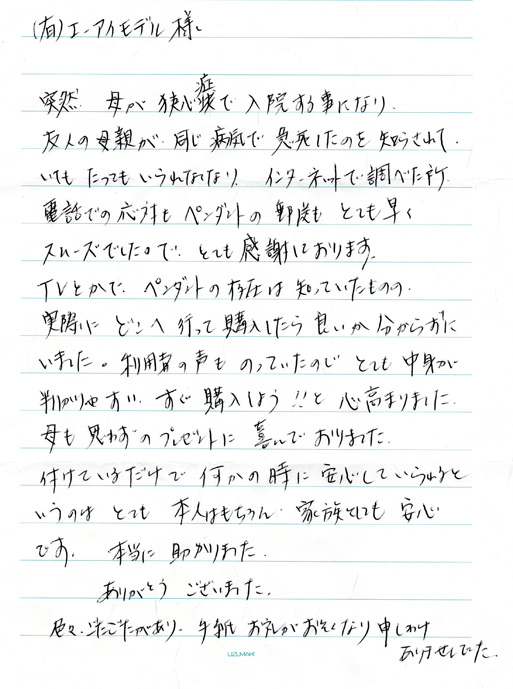 (有)エーアイモデル様。
突然、母が狭心症で入院する事になり、
友人の母親が、同じ病気で急死したのを知らされて、
いても たっても いられなくなり、インターネットで調べた所、
電話での応対も ペンダントの郵送も とても早く
スムーズでしたので、とても感謝しております。
TVとかで、ペンダントの存在は知っていたものの、
実際に どこへ行って購入したら良いか分からずに
いました。利用者の声も のっていたので とても中身が
判かりやすい、すぐ購入しよう!!と 心高まりました。
母も思わずのプレゼントに 喜んでおりました。
付けているだけで何かの時に安心していられると
いうのは とても 本人はもちろん、家族としても 安心
です。 本当に助かりました。
ありがとう ございました。
色々、ごたごたがあり、手紙 お礼がおそくなり 申しわけ
ありませんでした。
UZUMAKI